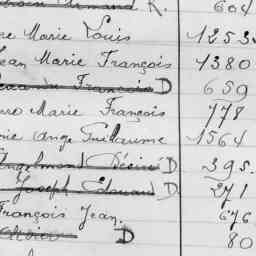 Armand R. 604
re Marie Louis 1253
Jean Marie François 1380
Jean François D 659
Marie François 778
rie Ange Guillaume 1564
Engelmond Désiré D 395.
Joseph Edouard D 271
François Jean. 676
D 80